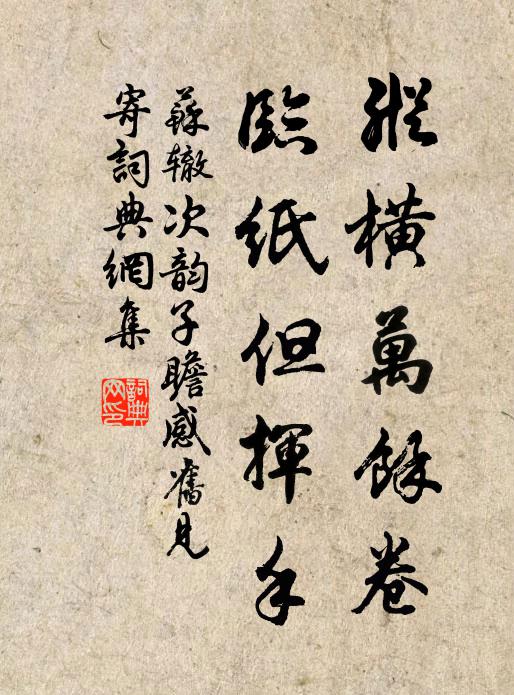 縱橫萬餘卷
臨紙但揮手
蘇辙次韵子瞻感舊見
寄詞典網集
詞典
网印